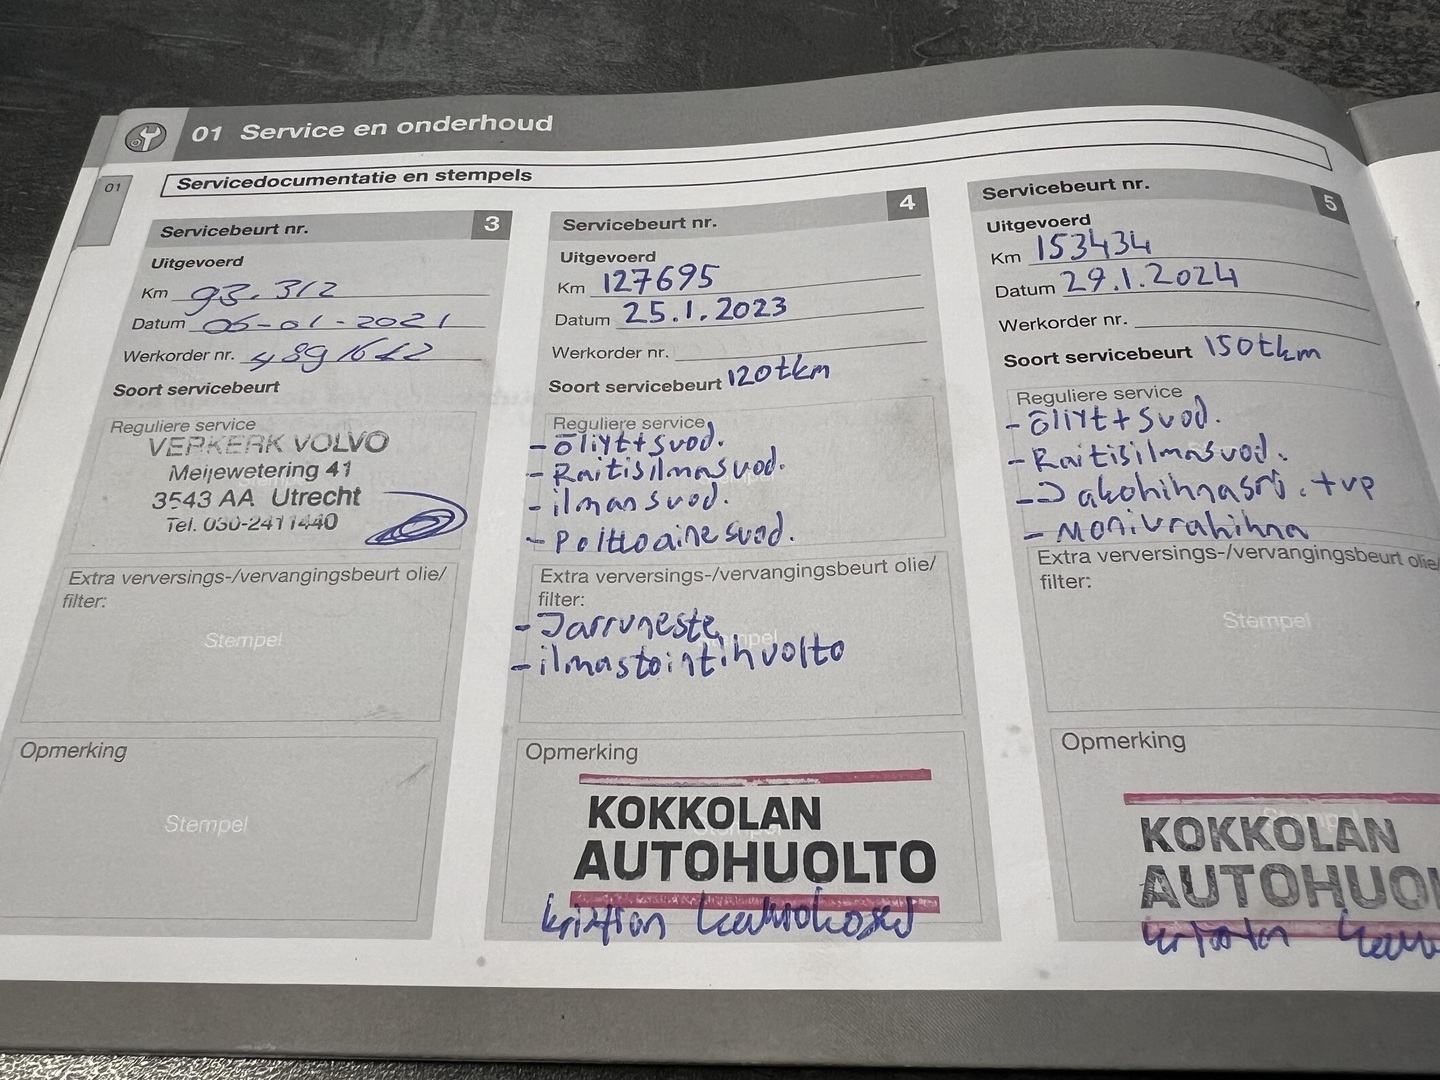 01 Service en onderhoud
01
Servicedocumentatie en stempels
Servicebeurt nr. 3
Uitgevoerd
Km 93.312
Datum 05-01-2021
Werkorder nr.
Soort servicebeurt
Reguliere service
VERKERK VOLVO
Meijewetering 41
3543 AA Utrecht
Tel. 030-2411440
Extra verversings-/vervangingsbeurt olie/
filter:
Stempel
Opmerking
Stempel
Servicebeurt nr. 4
Uitgevoerd
Km 127695
Datum 25.1.2023
Werkorder nr.
Soort servicebeurt 120tkm
Reguliere service
- öliyt+suod.
- Raitisilmasuod.
- ilmansuod.
- Polttoainesuod.
Extra verversings-/vervangingsbeurt olie/
filter:
- Jarruneste
- ilmastointihuolto
Opmerking
KOKKOLAN
AUTOHUOLTO
Servicebeurt nr. 5
Uitgevoerd
Km 153434
Datum 29.1.2024
Werkorder nr.
Soort servicebeurt 150tkm
Reguliere service
- öliyt+suod.
- Raitisilmasuod.
- Jakohihnasrj.+vp
- Moniurahihna
Extra verversings-/vervangingsbeurt olie/
filter:
Stempel
Opmerking
KOKKOLAN
AUTOHUO